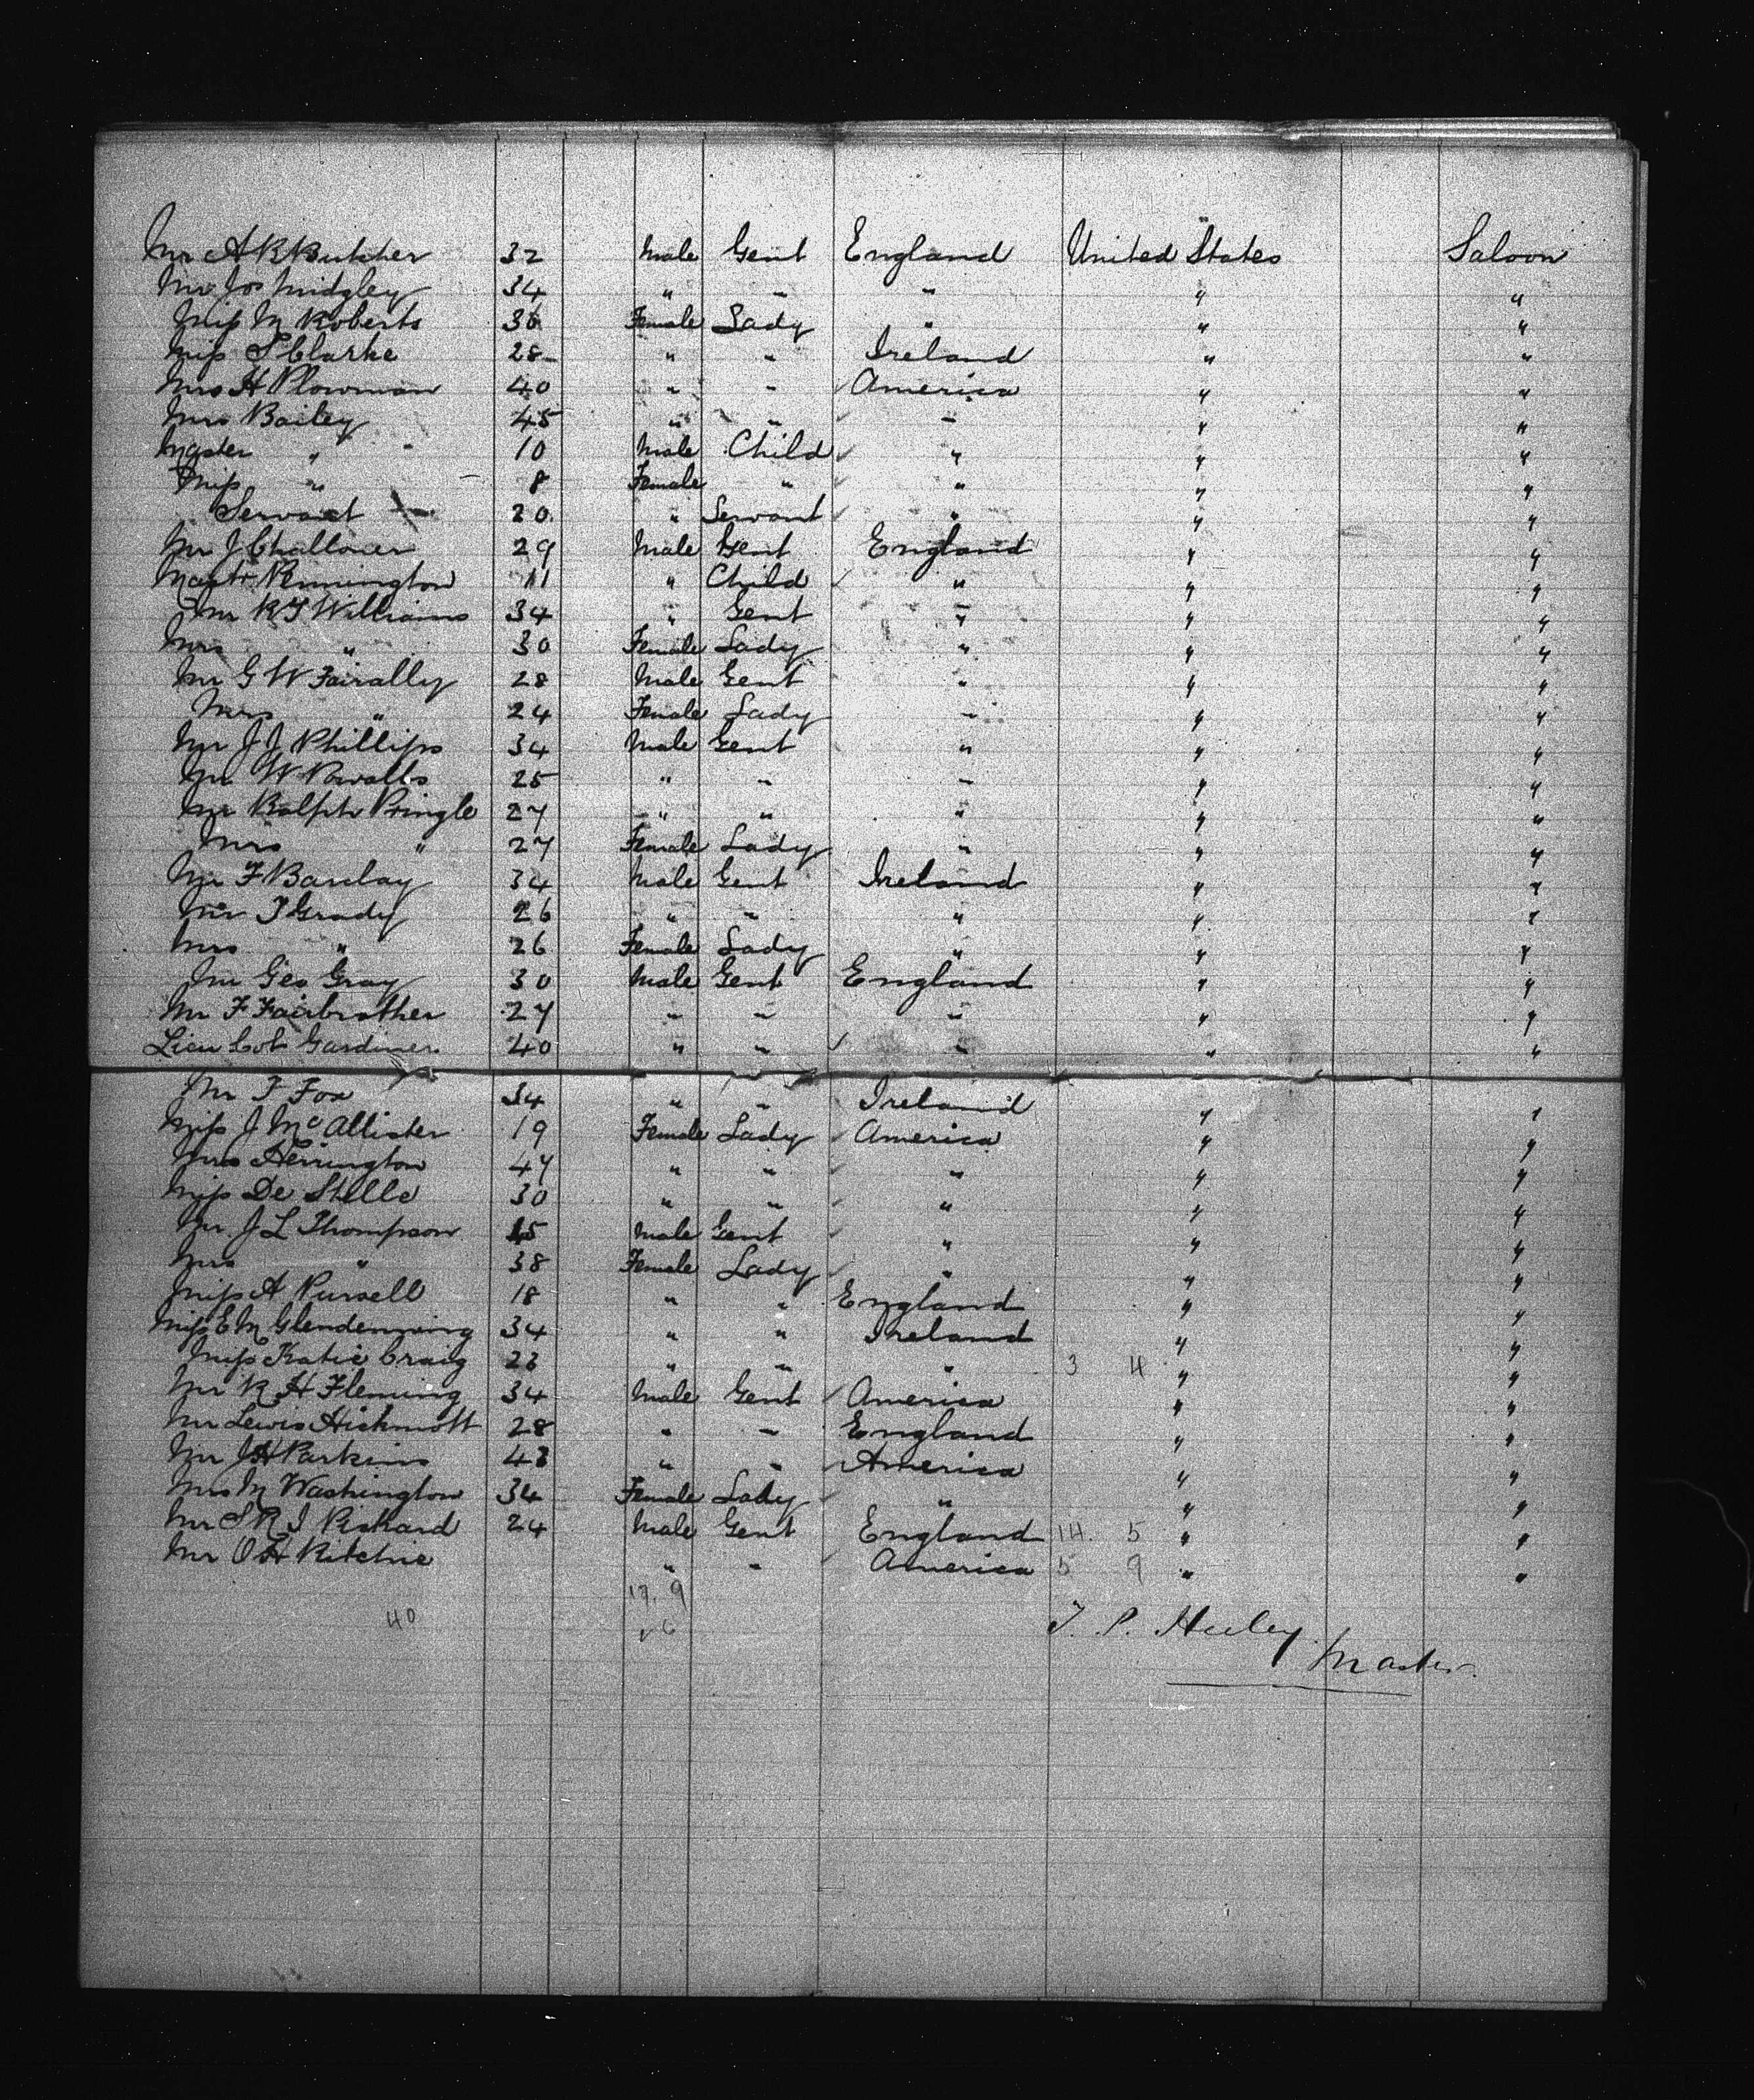 Mr A R Butcher 32 Male Gent England United States Saloon
Mr Jos Midgley 34 " " " " "
Miss M Roberts 36 Female Lady " " "
Miss S Clarke 28 " " Ireland " "
Mrs H Plowman 40 " " America " "
Mrs Bailey 45 " " " " "
Master " 10 Male Child " " "
Miss " 8 Female " " " "
Servant 20 " Servant " " "
Mr J Challoner 29 Male Gent England " "
Mastr Pennington 11 " Child " " "
Mr R T Williams 34 " Gent " " "
Mrs " 30 Female Lady " " "
Mr G W Fairally 28 Male Gent " " "
Mrs " 24 Female Lady " " "
Mr J J Phillips 34 Male Gent " " "
Mr W 25 " " " " "
Mr Ralph Pringle 27 " " " " "
Mrs " 27 Female Lady " " "
Mr F Barclay 34 Male Gent Ireland " "
Mr T Grady 26 " " " " "
Mrs " 26 Female Lady " " "
Mr Geo Gray 30 Male Gent England " "
Mr F Fairbrother 27 " " " " "
Lieu Col Gardiner 40 " " " " "
Mr F Fox 34 " " Ireland " "
Miss J McAllister 19 Female Lady America " "
Mrs Herrington 47 " " " " "
Miss De Stelle 30 " " " " "
Mr J L Thompson 45 Male Gent " " "
Mrs " 38 Female Lady " " "
Miss A Pursell 18 " " England " "
Miss E M Glendenning 34 " " Ireland " "
Miss Katie Craig 23 " " " 3 4 " "
Mr R H Fleming 34 Male Gent America " "
Mr Lewis Hickmott 28 " " England " "
Mr J H Parkins 43 " " America " "
Mrs M Washington 34 Female Lady " " "
Mr S R J Rickard 24 Male Gent England 14 5 " "
Mr O H Ritchie " " America 5 9 " "
17. 9
40
T. P. Heeley Master.